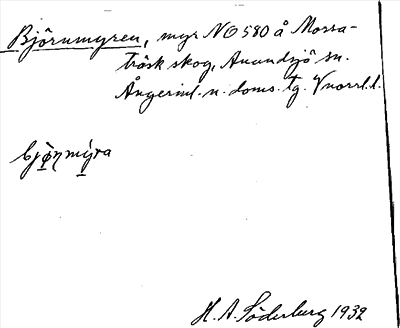 Björnmyren, myr NO 580 å Mossa-
träsk skog, Anundsjö sn.
Ångerml. n. doms. tg. Vnorrl. l.
bjø̀ṇmýra
H. A. Söderberg 1932